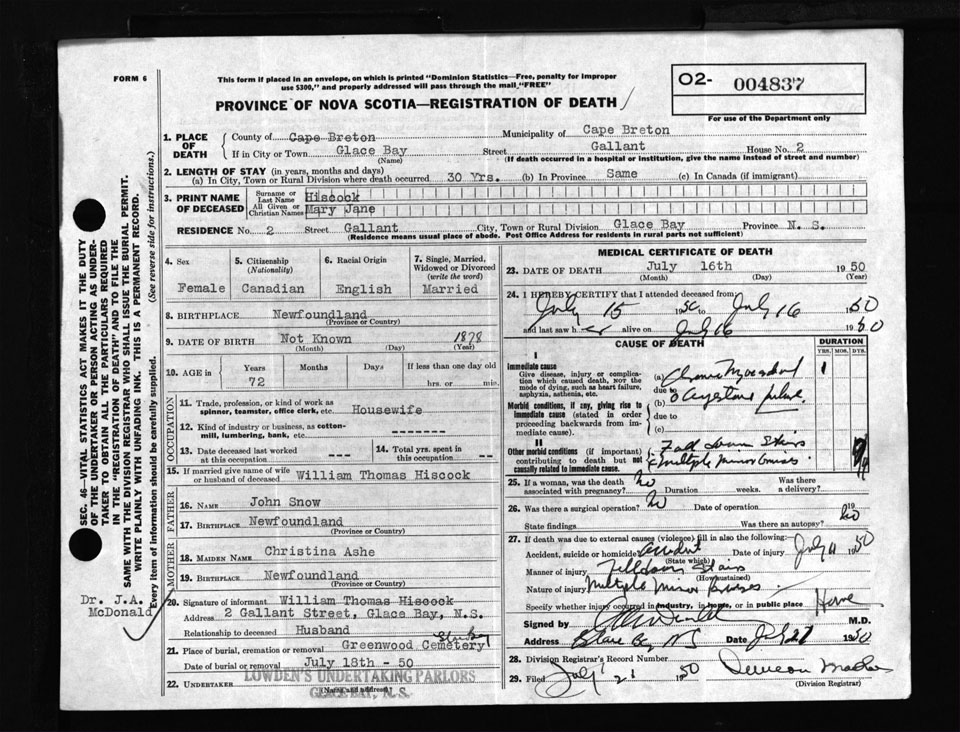 FORM 6
This form if placed in an envelope, on which is printed "Dominion Statistics—Free, penalty for improper
use $300," and properly addressed will pass through the mail, "FREE"
O2- 004837
For use of the Department only
PROVINCE OF NOVA SCOTIA—REGISTRATION OF DEATH
1. PLACE OF DEATH
County of Cape Breton Municipality of Cape Breton
If in City or Town Glace Bay Street Gallant House No. 2
(Name) (If death occurred in a hospital or institution, give the name instead of street and number)
2. LENGTH OF STAY (in years, months and days)
(a) In City, Town or Rural Division where death occurred 30 Yrs. (b) In Province Same (c) In Canada (if immigrant)
3. PRINT NAME OF DECEASED
Surname or Last Name Hiscock
All Given or Christian Names Mary Jane
RESIDENCE No. 2 Street Gallant City, Town or Rural Division Glace Bay Province N. S.
(Residence means usual place of abode. Post Office Address for residents in rural parts not sufficient)
4. Sex
Female
5. Citizenship
(Nationality)
Canadian
6. Racial Origin
English
7. Single, Married,
Widowed or Divorced
(write the word)
Married
8. BIRTHPLACE Newfoundland
(Province or Country)
9. DATE OF BIRTH Not Known 1878
(Month) (Day) (Year)
10. AGE in Years Months Days If less than one day old
72 hrs. or min.
OCCUPATION
11. Trade, profession, or kind of work as
spinner, teamster, office clerk, etc. Housewife
12. Kind of industry or business, as cotton-
mill, lumbering, bank, etc. -------
13. Date deceased last worked
at this occupation ---
14. Total yrs. spent in
this occupation --
15. If married give name of wife
or husband of deceased William Thomas Hiscock
FATHER
16. NAME John Snow
17. BIRTHPLACE Newfoundland
(Province or Country)
MOTHER
18. MAIDEN NAME Christina Ashe
19. BIRTHPLACE Newfoundland
(Province or Country)
20. Signature of informant William Thomas Hiscock
Address 2 Gallant Street, Glace Bay, N.S.
Relationship to deceased Husband
21. Place of burial, cremation or removal Greenwood Cemetery
Date of burial or removal July 18th - 50
22. UNDERTAKER LOWDEN'S UNDERTAKING PARLORS
(Name and address)
GLACE BAY, N. S.
MEDICAL CERTIFICATE OF DEATH
23. DATE OF DEATH July 16th 1950
(Month) (Day) (Year)
24. I HEREBY CERTIFY that I attended deceased from
July 15 1950 to July 16 1950
and last saw her alive on July 16 1950
CAUSE OF DEATH
DURATION
YRS. MOS. DYS.
I
Immediate cause
Give disease, injury or complica-
tion which caused death, NOT the
mode of dying, such as heart failure,
asphyxia, asthenia, etc.
(a) 1
due to
Morbid conditions, if any, giving rise to
immediate cause (stated in order
proceeding backwards from im-
mediate cause).
(b)
due to
(c)
II
Other morbid conditions (if important)
contributing to death but not
causally related to immediate cause.
Fall down Stairs
Multiple minor bruises
25. If a woman, was the death
associated with pregnancy? No Duration weeks. Was there
a delivery?
26. Was there a surgical operation? No Date of operation 19
State findings Was there an autopsy? No
27. If death was due to external causes (violence) fill in also the following:
Accident, suicide or homicide accident Date of injury July 11 1950
(State which)
Manner of injury Fell down Stairs
(How sustained)
Nature of injury Multiple minor bruises
Specify whether injury occurred in industry, in home, or in public place Home
Signed by M.D.
Address Glace Bay NS Date July 21 1950
28. Division Registrar's Record Number
29. Filed July 21 1950
(Division Registrar)
SEC. 46—VITAL STATISTICS ACT MAKES IT THE DUTY
OF THE UNDERTAKER OR PERSON ACTING AS UNDER-
TAKER TO OBTAIN ALL THE PARTICULARS REQUIRED
IN THE "REGISTRATION OF DEATH" AND TO FILE THE
SAME WITH THE DIVISION REGISTRAR WHO SHALL ISSUE THE BURIAL PERMIT.
WRITE PLAINLY WITH UNFADING INK. THIS IS A PERMANENT RECORD.
Every item of information should be carefully supplied. (See reverse side for instructions.)
Dr. J.A.
McDonald